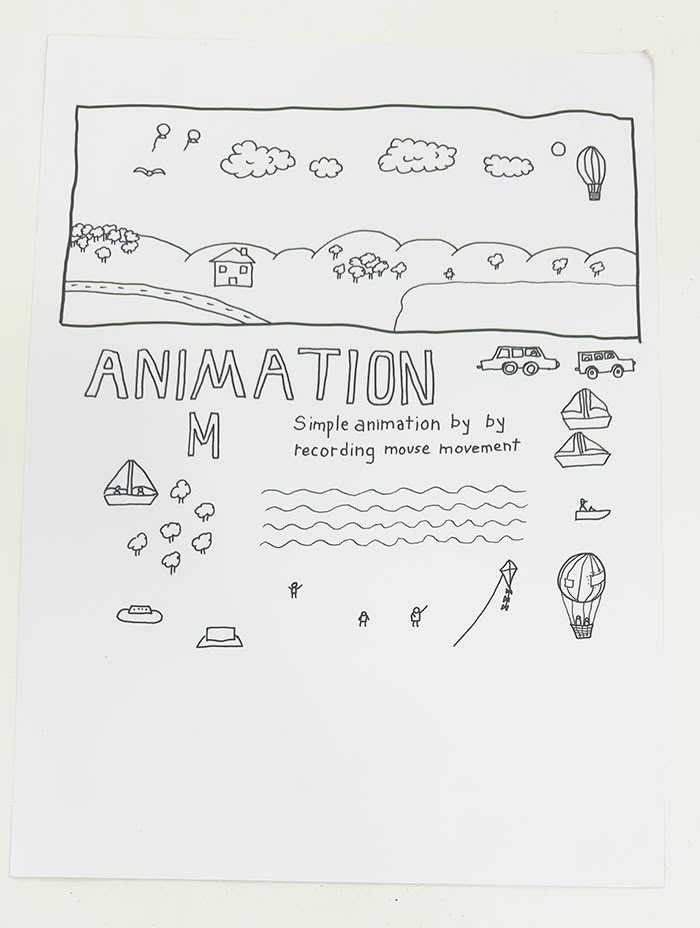 ANIMATION
M
Simple animation by by
recording mouse movement